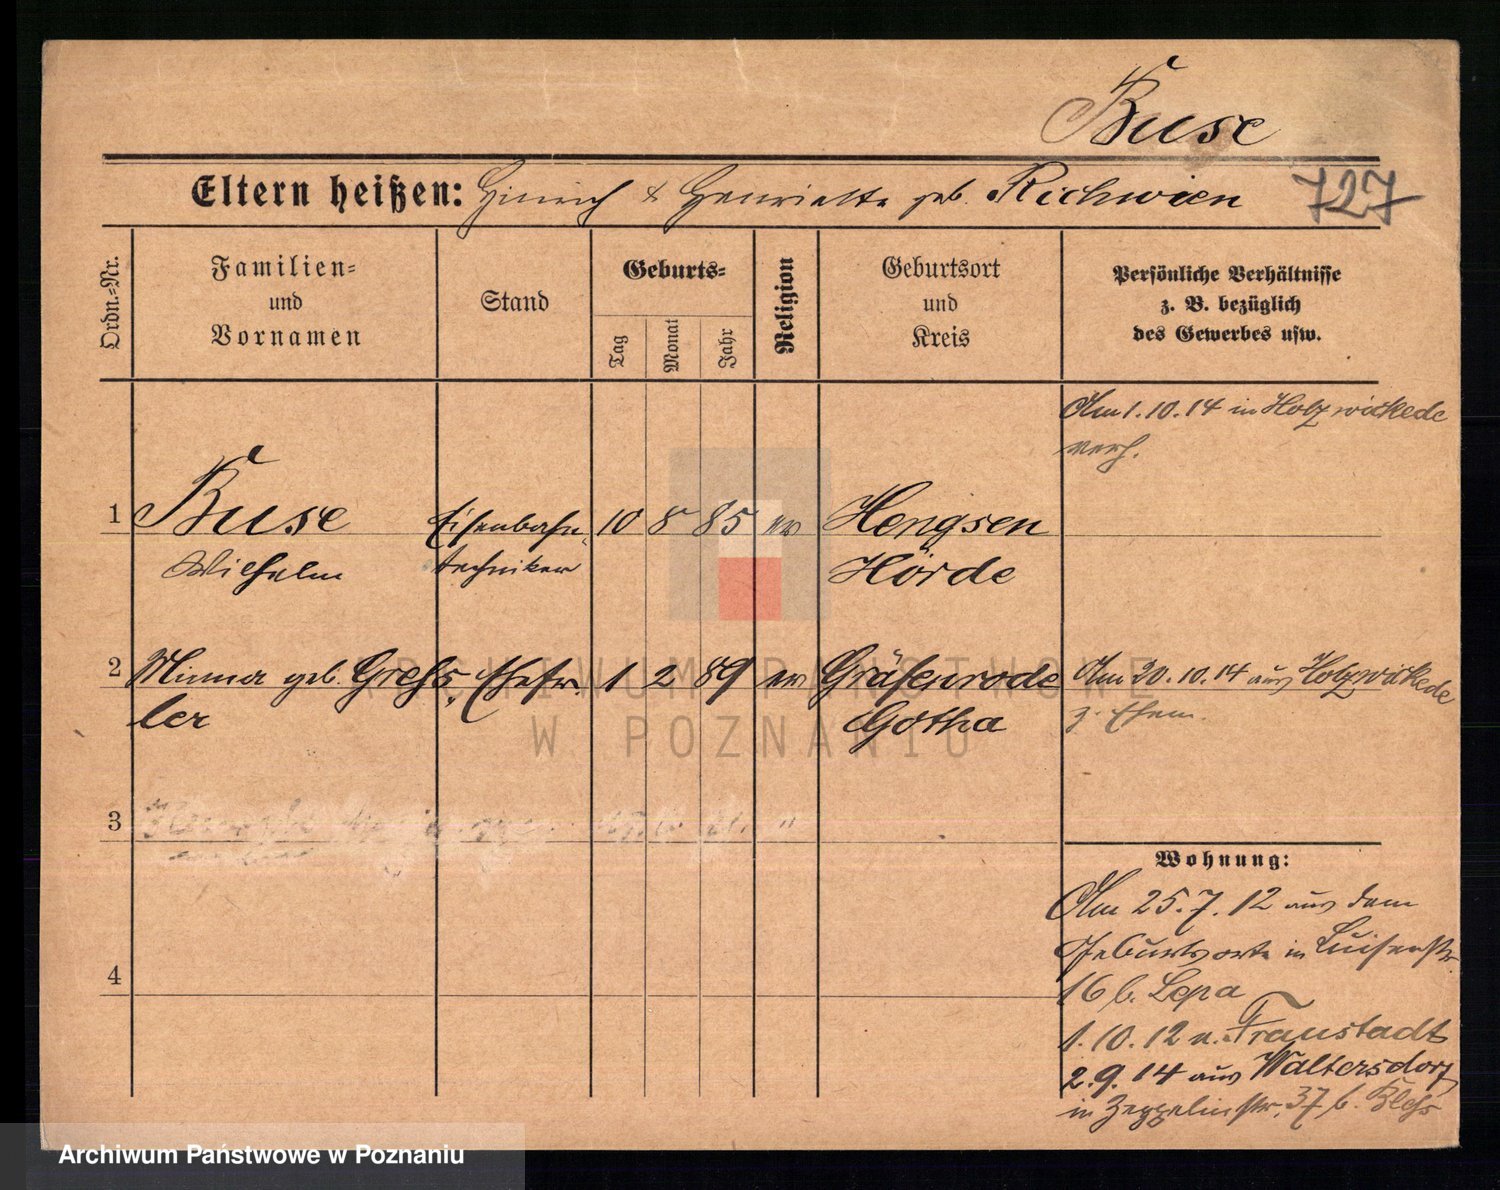 Buse
Eltern heißen: Hinrich & Henriette geb. Richwien 727
Ordn.=Nr.
Familien=
und
Vornamen
Stand
Geburts=
Tag
Monat
Jahr
Religion
Geburtsort
und
Kreis
Persönliche Verhältnisse
z. B. bezüglich
des Gewerbes usw.
Am 1.10.14 in Holzwickede
verh.
1 Buse Eisenbahn- 10 8 85 ev Hengsen
Wilhelm techniker Hörde
2 Minna geb. Greß- Ehefr. 1 2 89 ev Gräfenrode Am 20.10.14 aus Holzwickede
ler Gotha z. Ehem.
3
4
Wohnung:
Am 25.7.12 aus dem
Geburtsorte in Luisenstr
16 b. Lepa
1.10.12 n. Fraustadt
2.9.14 aus Waltersdorf
in Zeppelinstr. 37 b.
ARCHIWUM PAŃSTWOWE
W POZNANIU
Archiwum Państwowe w Poznaniu